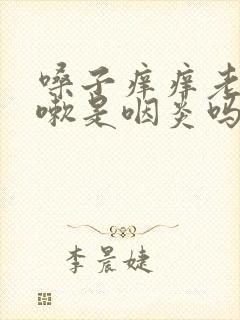 嗓子痒痒老
嗽是咽炎吗
李晨婕